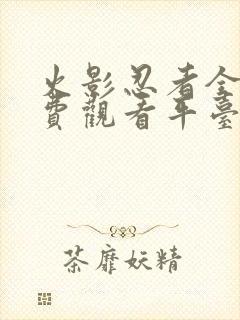 火影忍者全
費觀看平臺
荼靡妖精